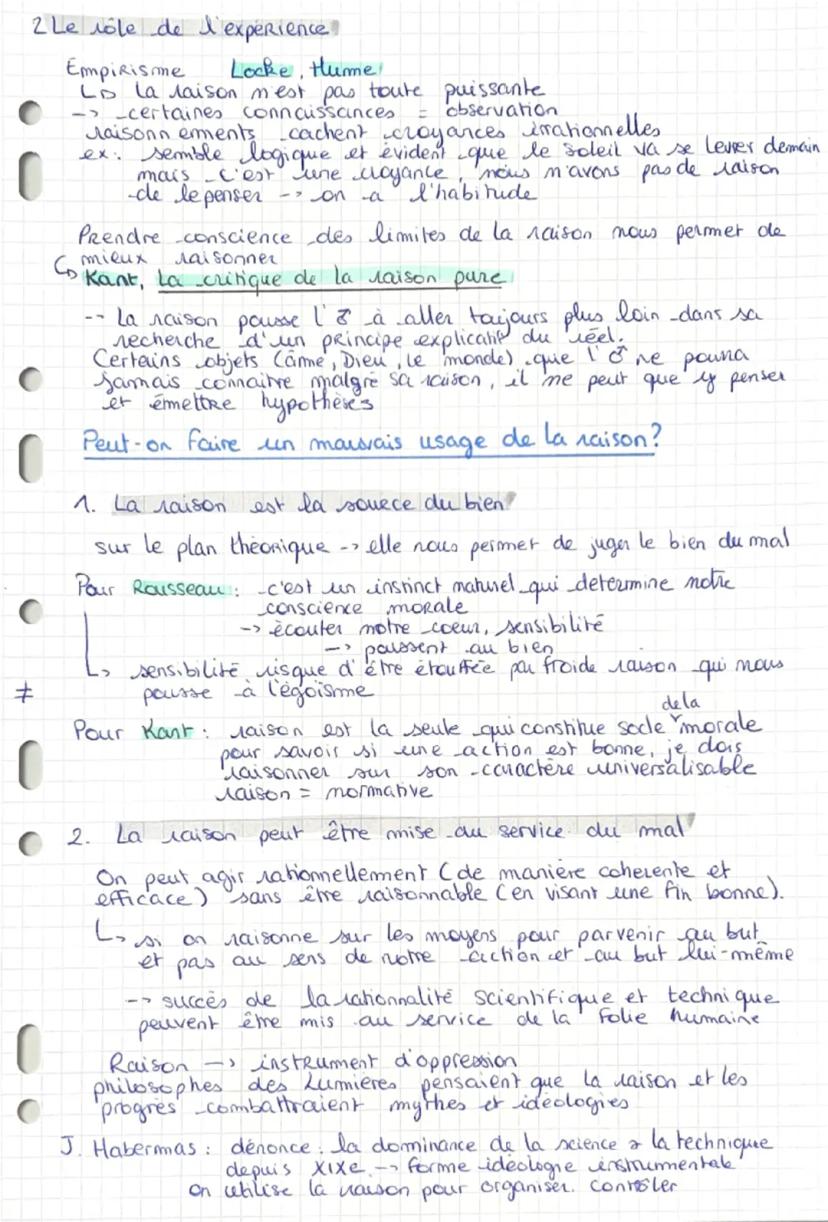 2 Le rôle de l'expérience
Empirisme Locke, Hume
↳ la raison n'est pas toute puissante
-> certaines connaissances = observation
raisonnements cachent croyances irrationnelles
ex: semble logique et évident que le soleil va se lever demain
mais c'est une croyance, nous n'avons pas de raison
de le penser -> on a l'habitude
Prendre conscience des limites de la raison nous permet de
mieux raisonner
↳ Kant, La critique de la raison pure
-- La raison pousse l'♂ à aller toujours plus loin dans sa
recherche d'un principe explicatif du réel.
Certains objets (âme, Dieu, le monde) que l'♂ ne pourra
jamais connaitre malgré sa raison, il ne peut que y penser
et émettre hypothèses
Peut-on faire un mauvais usage de la raison?
1. La raison est la source du bien
sur le plan théorique -> elle nous permet de juger le bien du mal
Pour Rousseau : c'est un instinct naturel qui determine notre
conscience morale
-> écouter notre coeur, sensibilité
-> poussent au bien
↳ sensibilité risque d'être étouffée par froide raison qui nous
≠ pousse à l'égoïsme
de la
Pour Kant : raison est la seule qui constitue socle morale
pour savoir si une action est bonne, je dois
raisonner sur son caractère universalisable
raison = normative
2. La raison peut être mise au service du mal
On peut agir rationnellement (de manière coherente et
efficace) sans être raisonnable (en visant une fin bonne).
↳ si on raisonne sur les moyens pour parvenir au but
et pas au sens de notre action et au but lui-même
-> succès de la rationnalité scientifique et technique
peuvent être mis au service de la folie humaine
Raison -> instrument d'oppression
philosophes des Lumières pensaient que la raison et les
progrès combattraient mythes et idéologies
J. Habermas : dénonce : la dominance de la science & la technique
depuis XIXe -> forme idéologie instrumentale
on utilise la raison pour organiser. contrôler